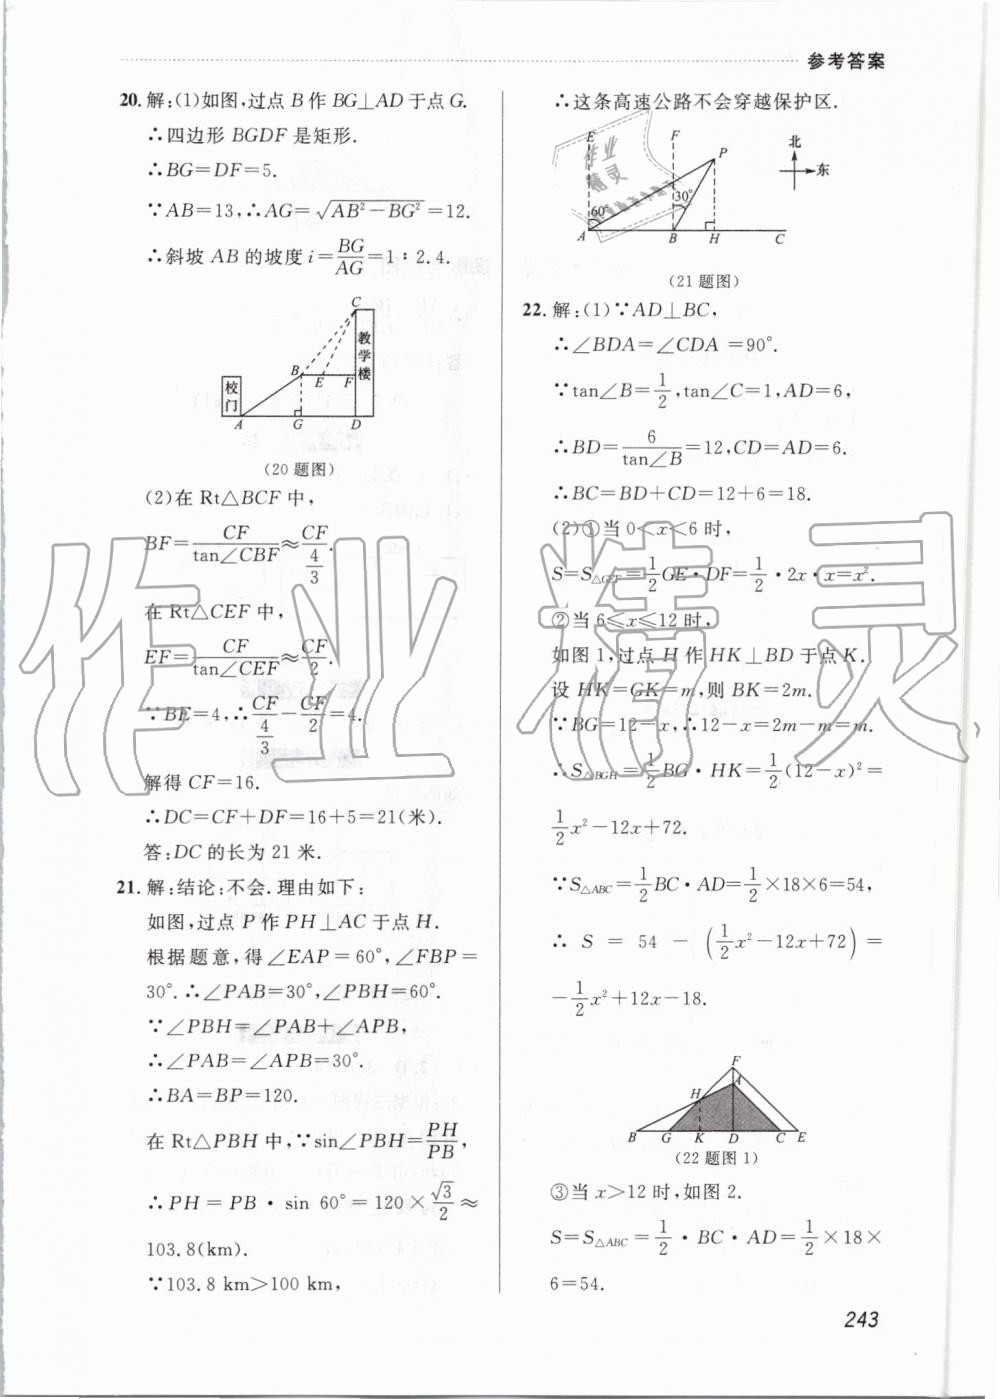 参考答案
20. 解:(1)如图,过点 B 作 BG⊥AD 于点 G.
∴四边形 BGDF 是矩形.
∴BG=DF=5.
∵AB=13,∴AG=√(AB²-BG²)=12.
∴斜坡 AB 的坡度 i=BG/AG=1∶2.4.
C
教学楼
B E F
校门
A G D
(20 题图)
(2)在 Rt△BCF 中,
BF=CF/tan∠CBF≈CF/(4/3).
在 Rt△CEF 中,
EF=CF/tan∠CEF≈CF/2.
∵BE=4,∴CF/(4/3)-CF/2=4.
解得 CF=16.
∴DC=CF+DF=16+5=21(米).
答:DC 的长为 21 米.
21. 解:结论:不会.理由如下:
如图,过点 P 作 PH⊥AC 于点 H.
根据题意,得∠EAP=60°,∠FBP=
30°.∴∠PAB=30°,∠PBH=60°.
∵∠PBH=∠PAB+∠APB,
∴∠PAB=∠APB=30°.
∴BA=BP=120.
在 Rt△PBH 中,∵sin∠PBH=PH/PB,
∴PH=PB·sin 60°=120×√3/2≈
103.8(km).
∵103.8 km>100 km,
∴这条高速公路不会穿越保护区.
E F P
北
东
60° 30°
A B H C
(21 题图)
22. 解:(1)∵AD⊥BC,
∴∠BDA=∠CDA=90°.
∵tan∠B=1/2,tan∠C=1,AD=6,
∴BD=6/tan∠B=12,CD=AD=6.
∴BC=BD+CD=12+6=18.
(2)①当 0<x<6 时,
S=S△GEF=1/2GE·DF=1/2·2x·x=x².
②当 6≤x≤12 时,
如图 1,过点 H 作 HK⊥BD 于点 K.
设 HK=GK=m,则 BK=2m.
∵BG=12-x,∴12-x=2m-m=m.
∴S△BGH=1/2BG·HK=1/2(12-x)²=
1/2x²-12x+72.
∵S△ABC=1/2BC·AD=1/2×18×6=54,
∴S=54-(1/2x²-12x+72)=
-1/2x²+12x-18.
F
A
H
B G K D C E
(22 题图 1)
③当 x>12 时,如图 2.
S=S△ABC=1/2·BC·AD=1/2×18×
6=54.
243
作业精灵
作业精灵